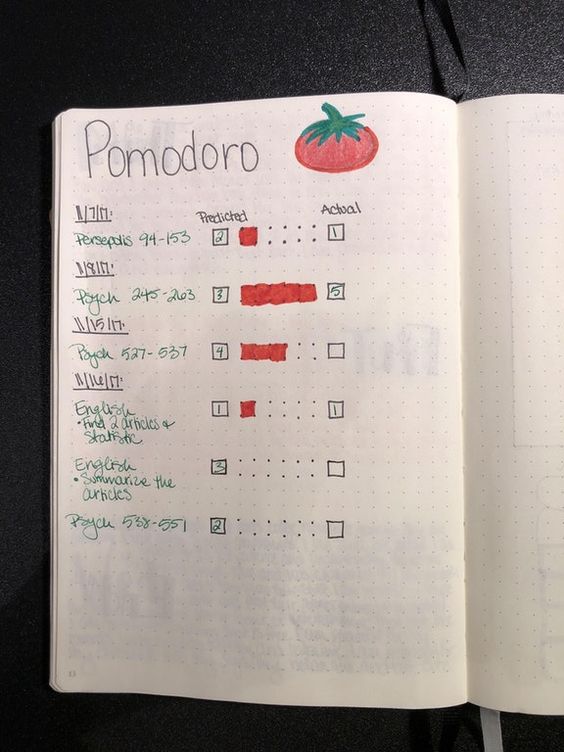 Pomodoro
11/7/17:
Predicted Actual
Persepolis 94-153 2 1
11/8/17:
Psych 245-263 3 5
11/15/17:
Psych 527-537 4
11/16/17:
English 1 1
• Find 2 articles &
statistic
English 3
• Summarize the
articles
Psych 538-551 2
13